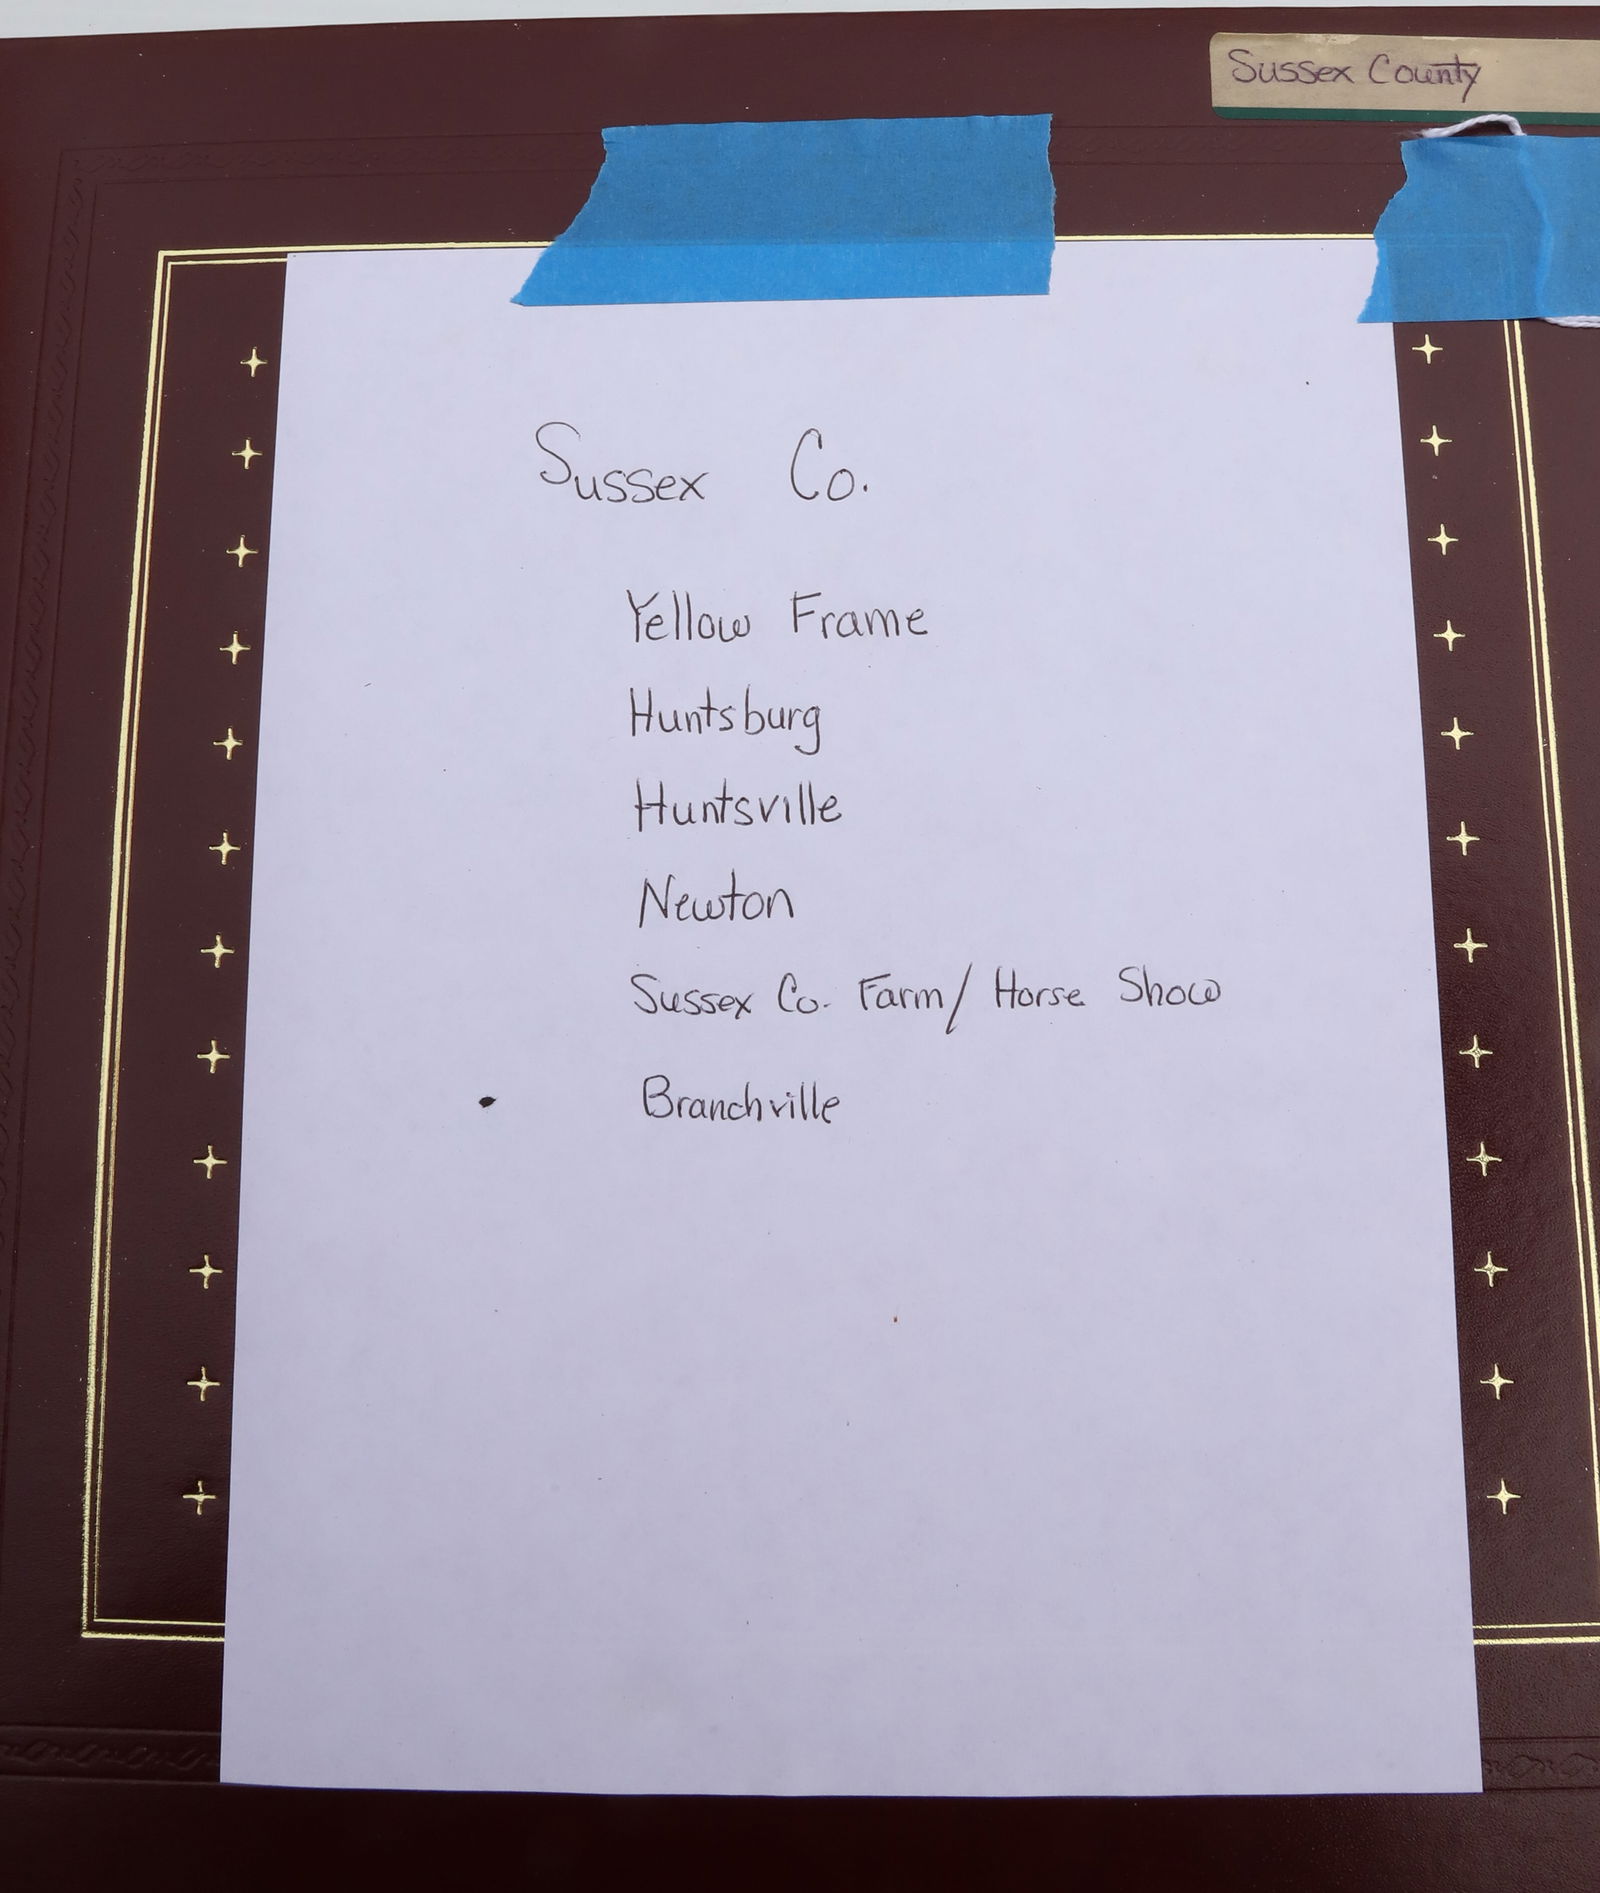 Sussex County
Sussex Co.
Yellow Frame
Huntsburg
Huntsville
Newton
Sussex Co. Farm/Horse Show
Branchville